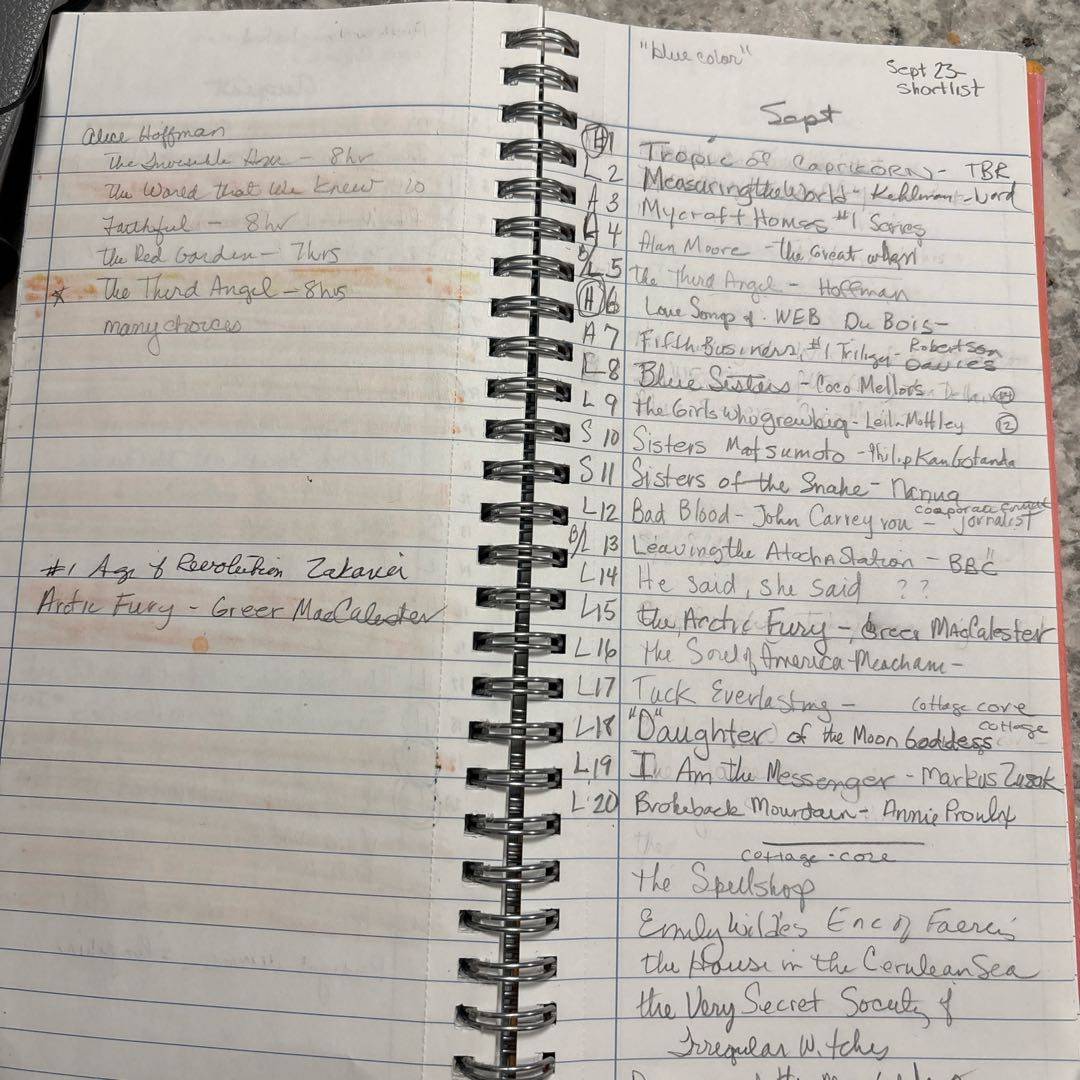 Alice Hoffman
The Invisible Hour - 8hr
The World that We Knew 10
Faithful - 8hr
The Red Garden - 7hrs
☆ The Third Angel - 8hrs
many choices
#1 Age of Revolution Zakaria
Arctic Fury - Greer MacCalester
"blue color"
Sept 23-
shortlist
Sept
H 1 Tropic of CapriKORN - TBR
L 2 Measuring the World - Kehlman -
A 3 Mycraft Homes #1 Series
A 4 Alan Moore - the Great when
B/L 5 the Third Angel - Hoffman
H 6 Love Songs of WEB Du Bois -
A 7 Fifth Business, #1 Trilogy - Robertson Davies
L 8 Blue Sisters - Coco Mellors
L 9 the Girls who grew big - Leila Mottley 12
S 10 Sisters Matsumoto - Philip Kan Gotanda
S 11 Sisters of the Snake - Nanua
L 12 Bad Blood - John Carreyrou - corporate fraud jornalist
B/L 13 Leaving the Atocha Station - BBC
L 14 He said, she said ??
L 15 the Arctic Fury - Greer MAcCalester
L 16 the Soul of America - Meacham -
L 17 Tuck Everlasting - cottage core
L 18 "D"aughter of the Moon Goddess cottage
L 19 I Am the Messenger - Markus Zusak
L 20 Brokeback Mountain - Annie Proulx
cottage-core
the Spellshop
Emily Wilde's Enc of Faeries
the House in the Cerulean Sea
the Very Secret Society of
Irregular Witches